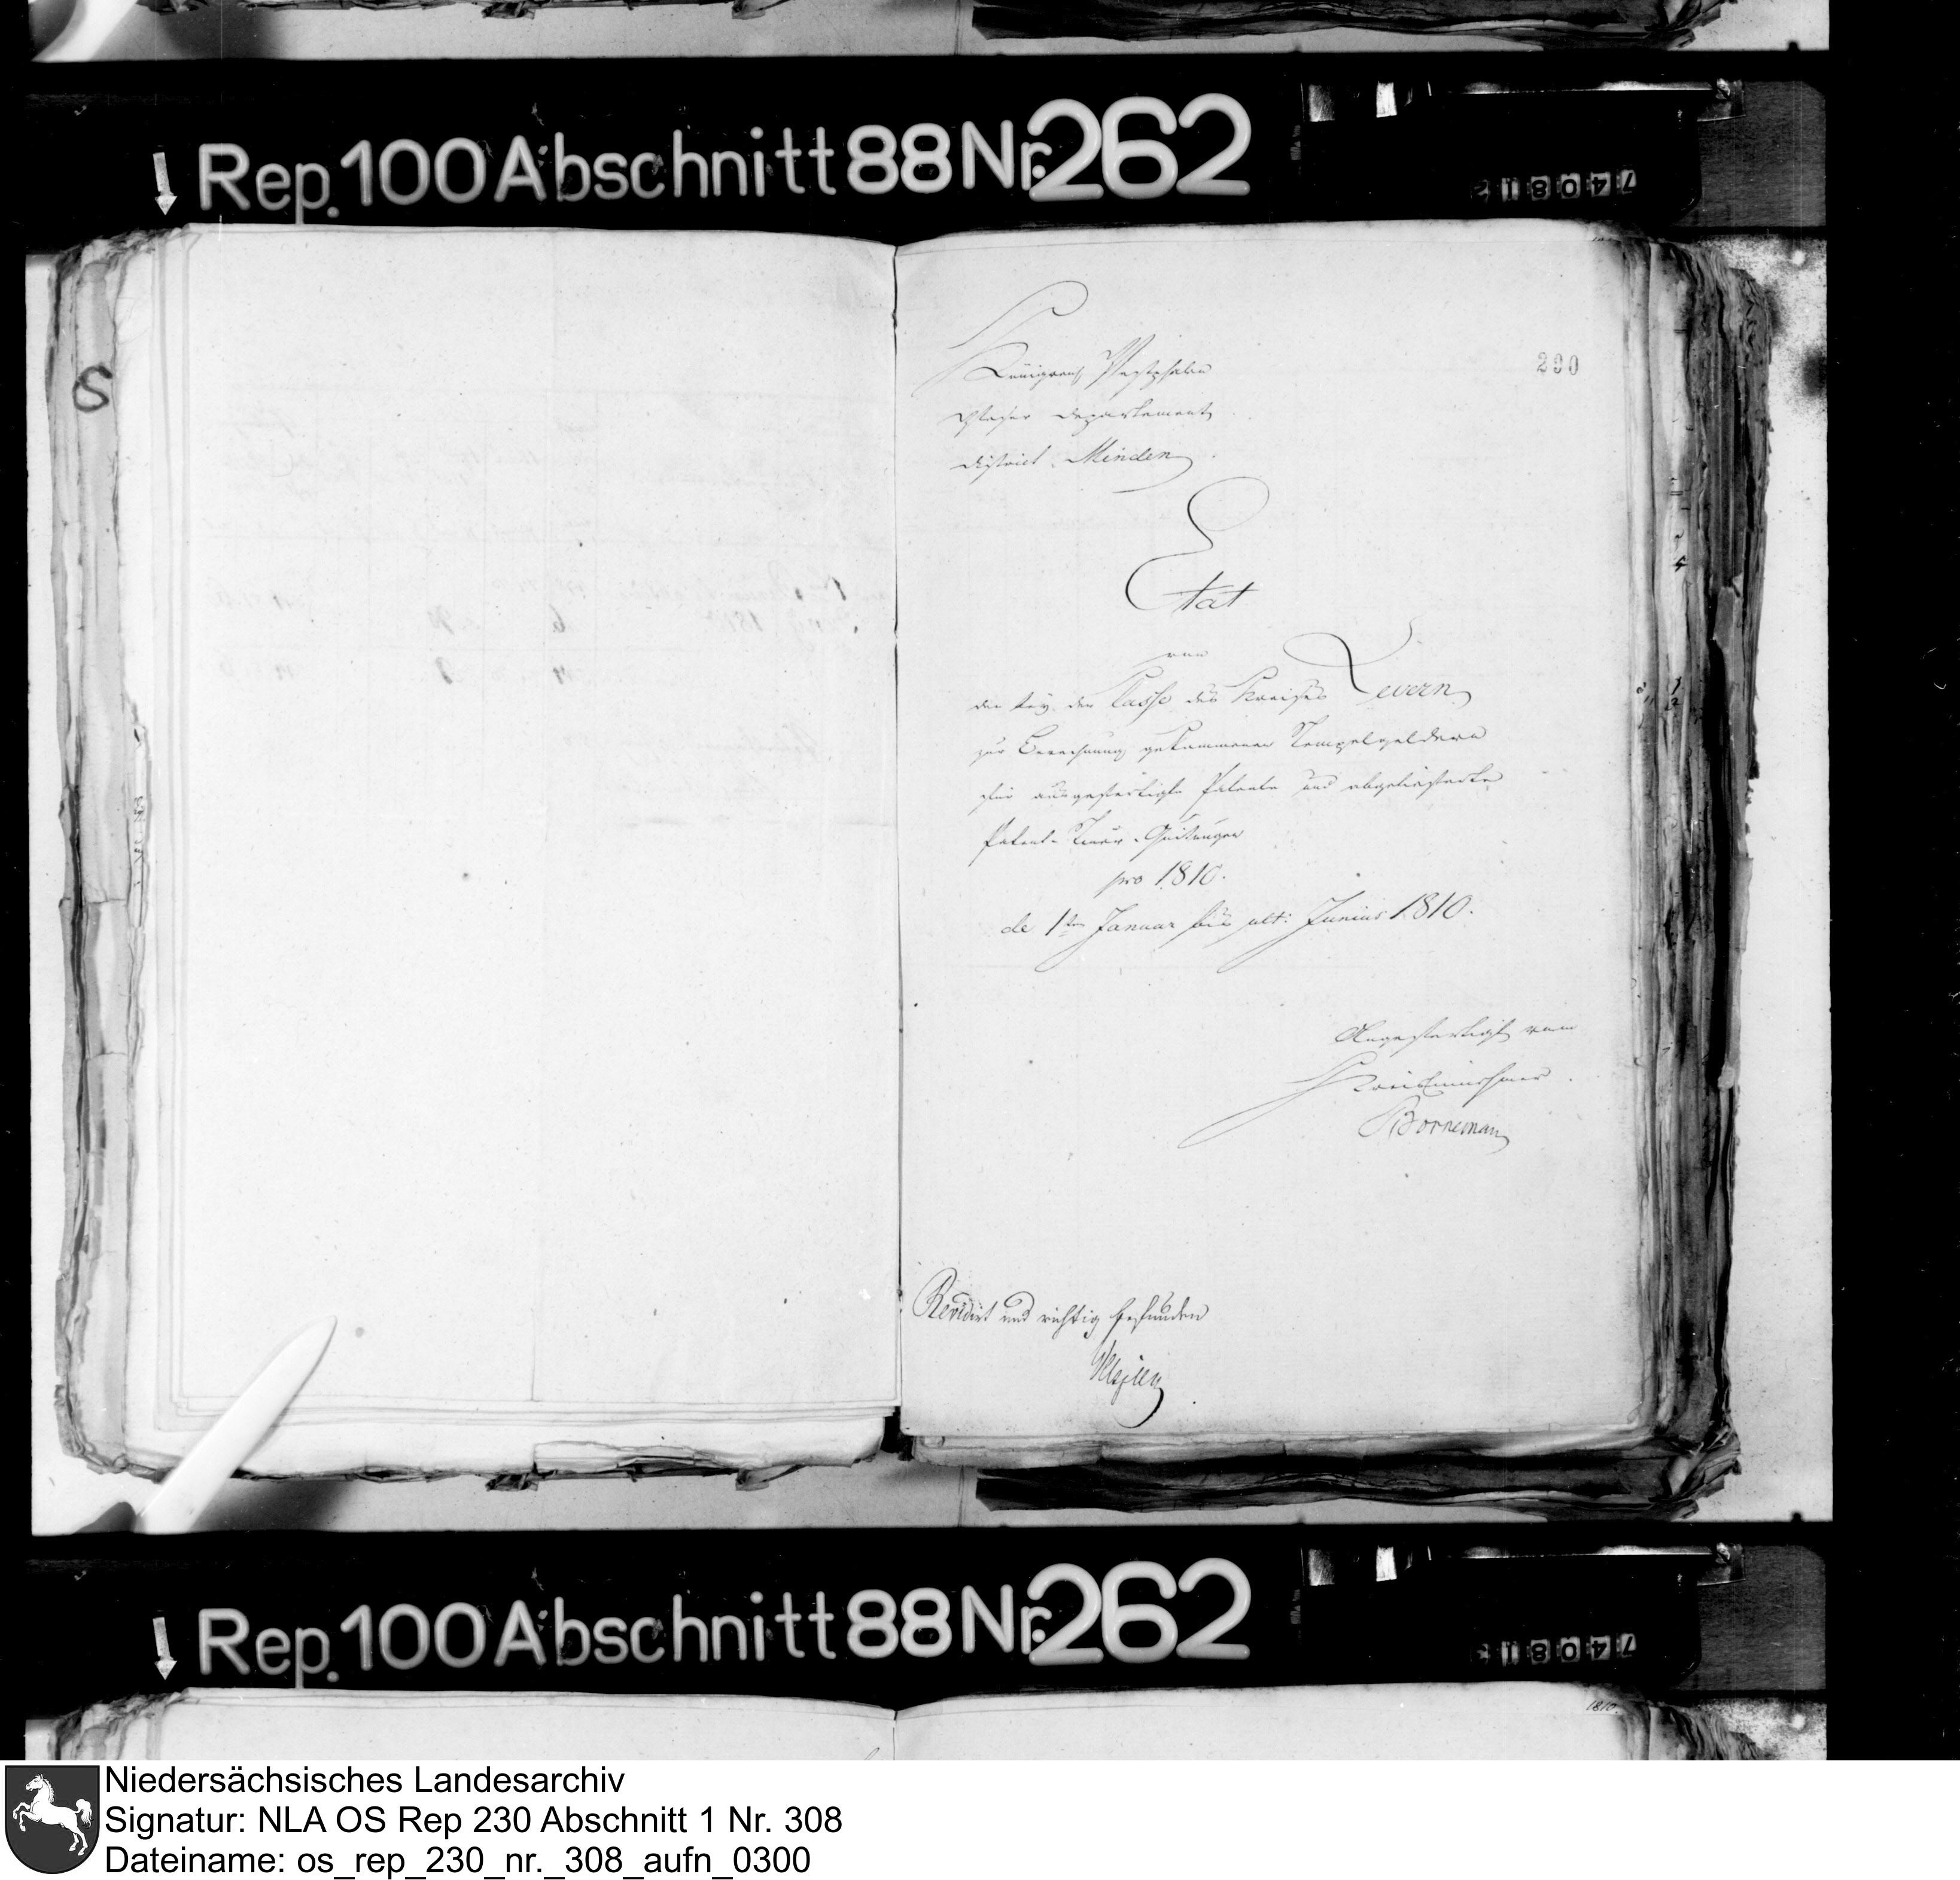 Rep. 100 Abschnitt 88 Nr. 262
74081
290
Königreich Westphalen
Weser Departement
District Minden
Etat
von
den bey der Casse des Kreises Levern
zur Berechnung gekommenen Stempelgeldern
für ausgefertigte Patente und abgelieferte
Patent-Steuer-Quitungen
pro 1810.
de 1ten Januar bis ult: Junius 1810.
Angefertigt vom
KreisEinnehmer
Borneman
Revidirt und richtig befunden
S
Rep. 100 Abschnitt 88 Nr. 262
74081
1810.
Niedersächsisches Landesarchiv
Signatur: NLA OS Rep 230 Abschnitt 1 Nr. 308
Dateiname: os_rep_230_nr._308_aufn_0300